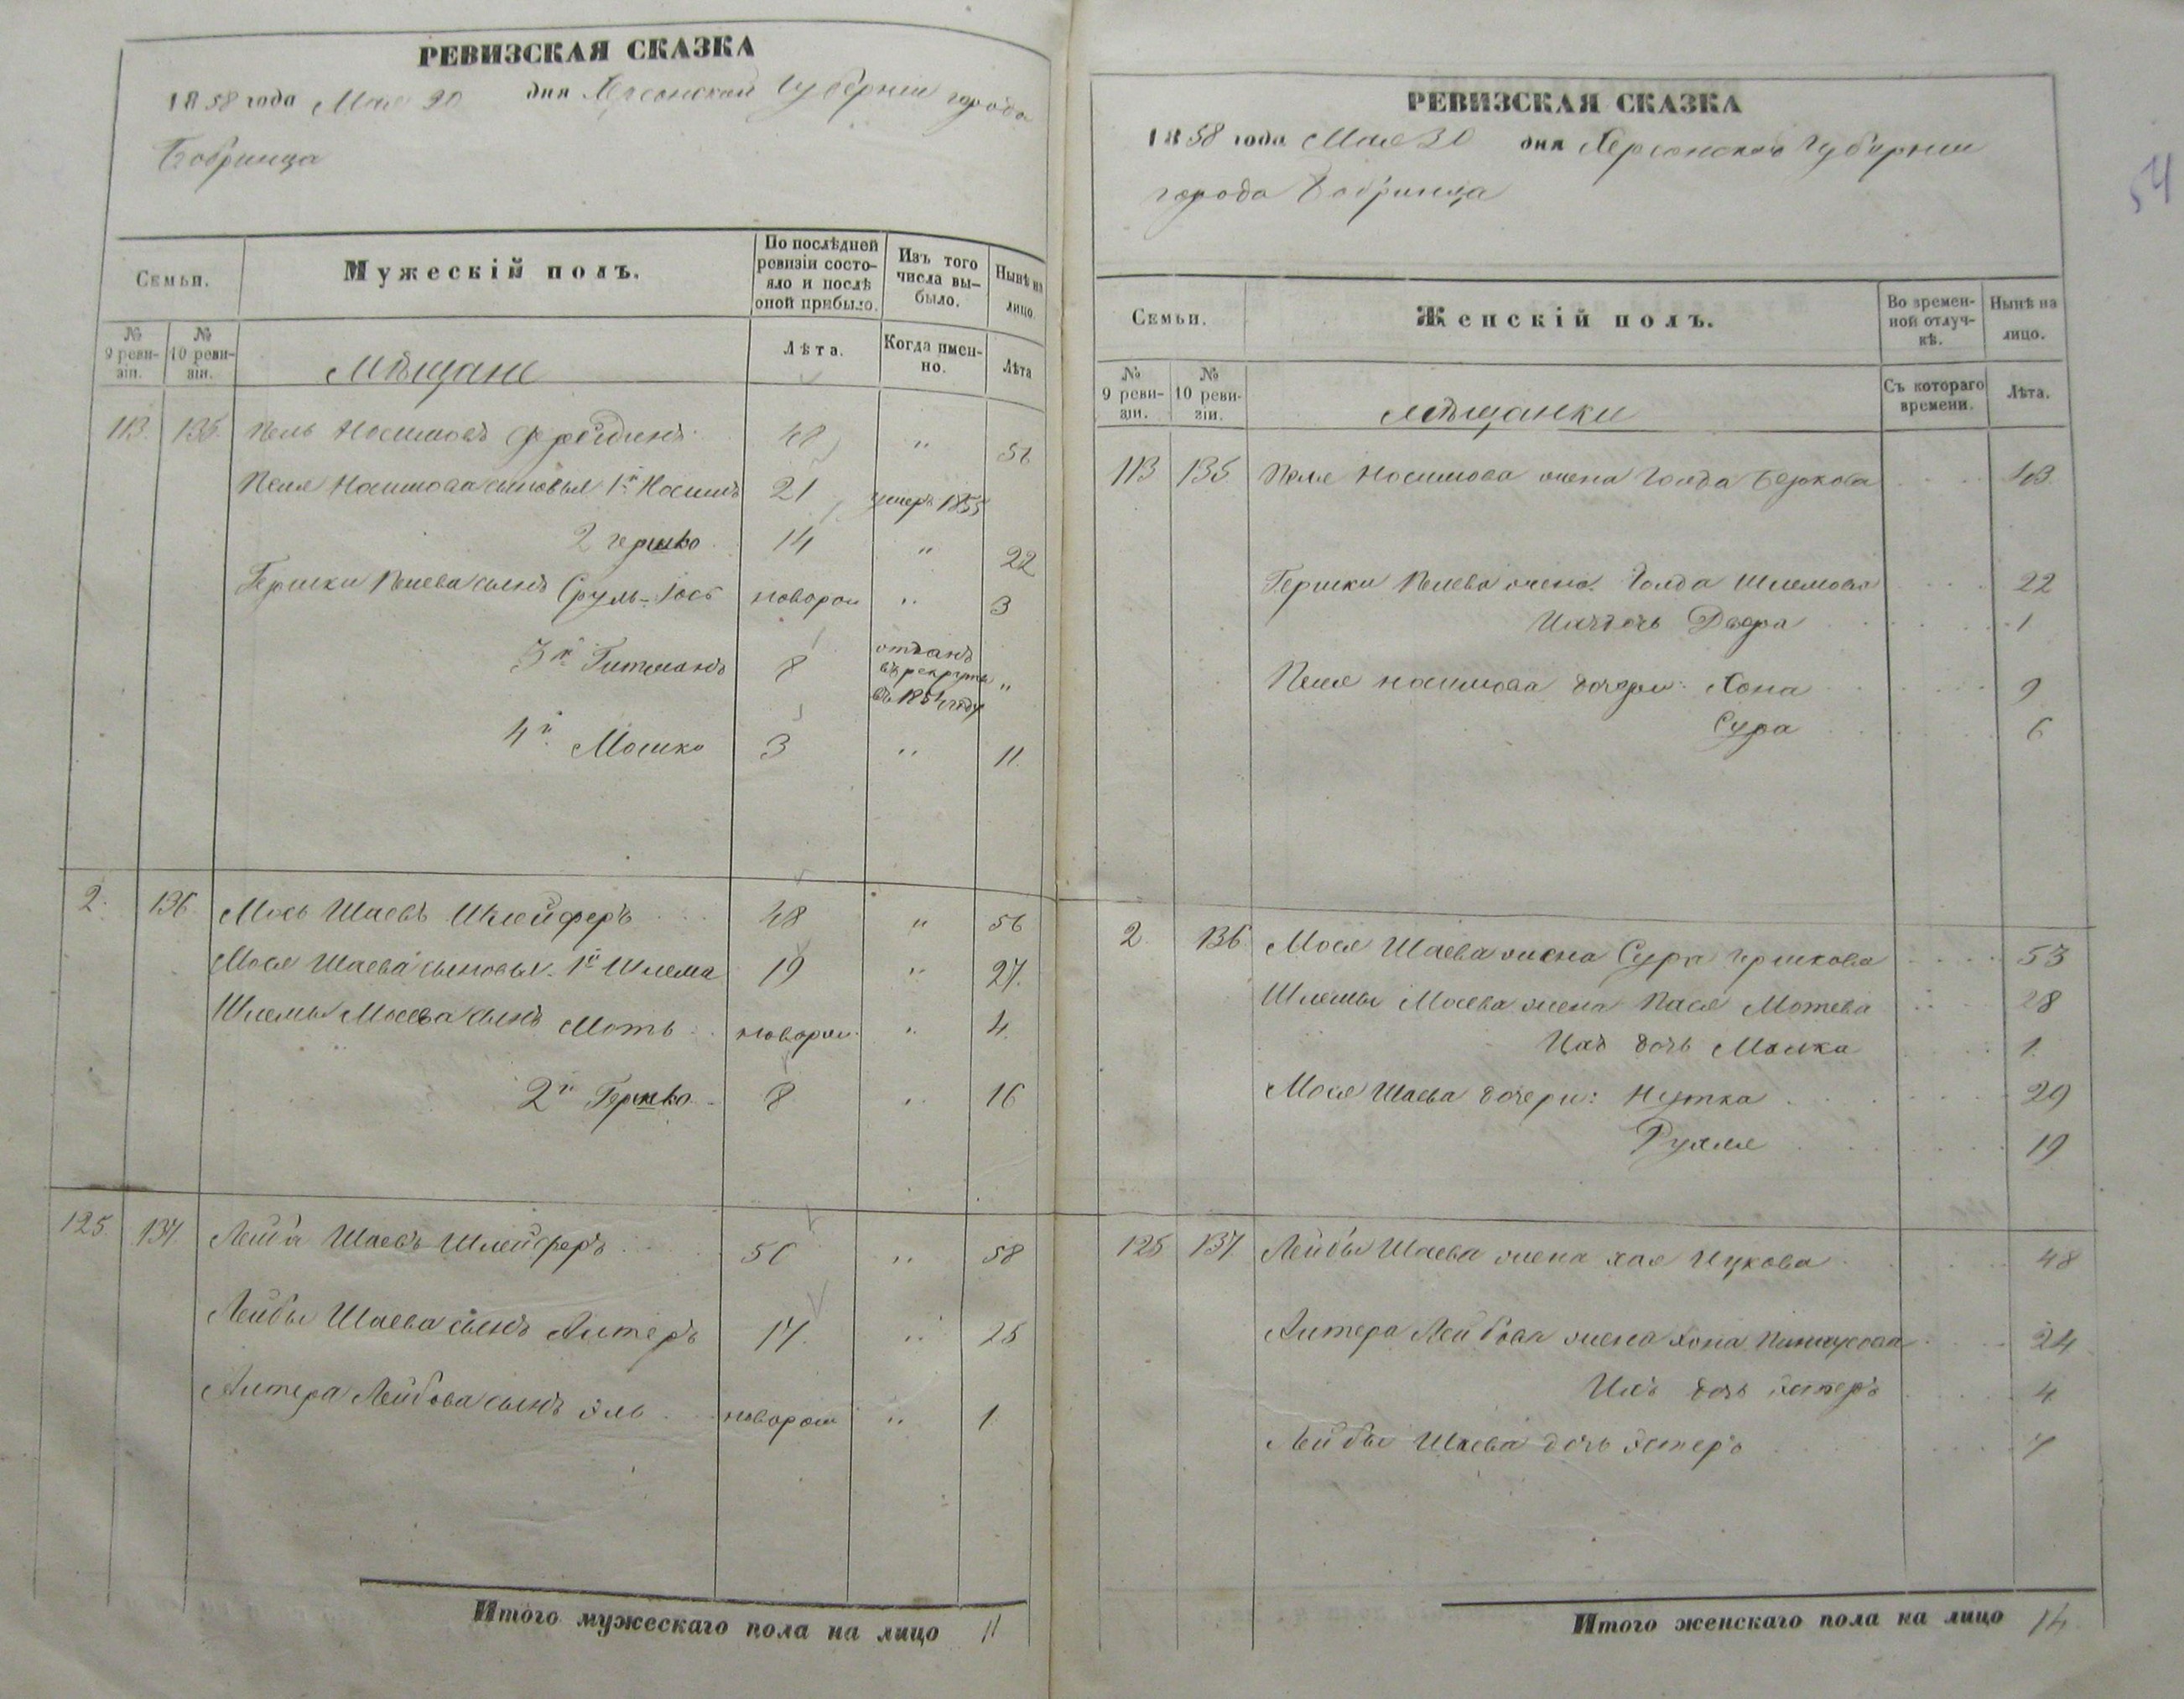 РЕВИЗСКАЯ СКАЗКА
1858 года Мая 30 дня Херсонской Губерніи города
Бобринца
Семьи.
Мужескій полъ.
По послѣдней ревизіи состояло и послѣ оной прибыло.
Изъ того числа выбыло.
Нынѣ на лицо.
№ 9 ревизіи.
№ 10 ревизіи.
Мѣщане
Лѣта.
Когда именно.
Лѣта
113. 135. Пель Носимовъ 48 " 56
Пеля Носимова сыновья 1й Носимъ 21 умеръ 1855
2 Гершко 14 " 22
Гершки Пелева сынъ Сруль-Іось новорож " 3
3й Гитманъ 8 отданъ въ рекруты въ 1854 году "
4й Мошко 3 " 11.
2. 136. Мось Шаевъ Шлейферъ 48 " 56
Мося Шаева сыновья 1й Шлема 19 " 27.
Шлемы Мосева сынъ Моть новорож. " 4.
2й Гершко 8 " 16
125. 137 Лейба Шаевъ Шлейферъ 50 " 58
Лейбы Шаева сынъ Алтеръ 17. " 25
Алтера Лейбова сынъ Эль новорож " 1.
Итого мужескаго пола на лицо 11
54
РЕВИЗСКАЯ СКАЗКА
1858 года Мая 30 дня Херсонской Губерніи
города Бобринца
Семьи.
Женскій полъ.
Во временной отлучкѣ.
Нынѣ на лицо.
№ 9 ревизіи.
№ 10 ревизіи.
Мѣщанки
Съ котораго времени.
Лѣта.
113 135. Пеля Носимова жена Голда Беркова 43.
Гершки Пелева жена Голда Шлемова 22
Ихъ дочь Двора 1
Пеля Носимова дочери: Хона 9
Сура 6
2. 136. Мося Шаева жена Сура Гершкова 53
Шлемы Мосева жена Пася Мотева 28
Ихъ дочь Малка 1.
Мося Шаева дочери: 29
Рухля 19
125 137. Лейбы Шаева жена Хая Ицкова 48
Алтера Лейбова жена Хона 24
Ихъ дочь Эстеръ 4
Лейбы Шаева дочь Эстеръ 7
Итого женскаго пола на лицо 14